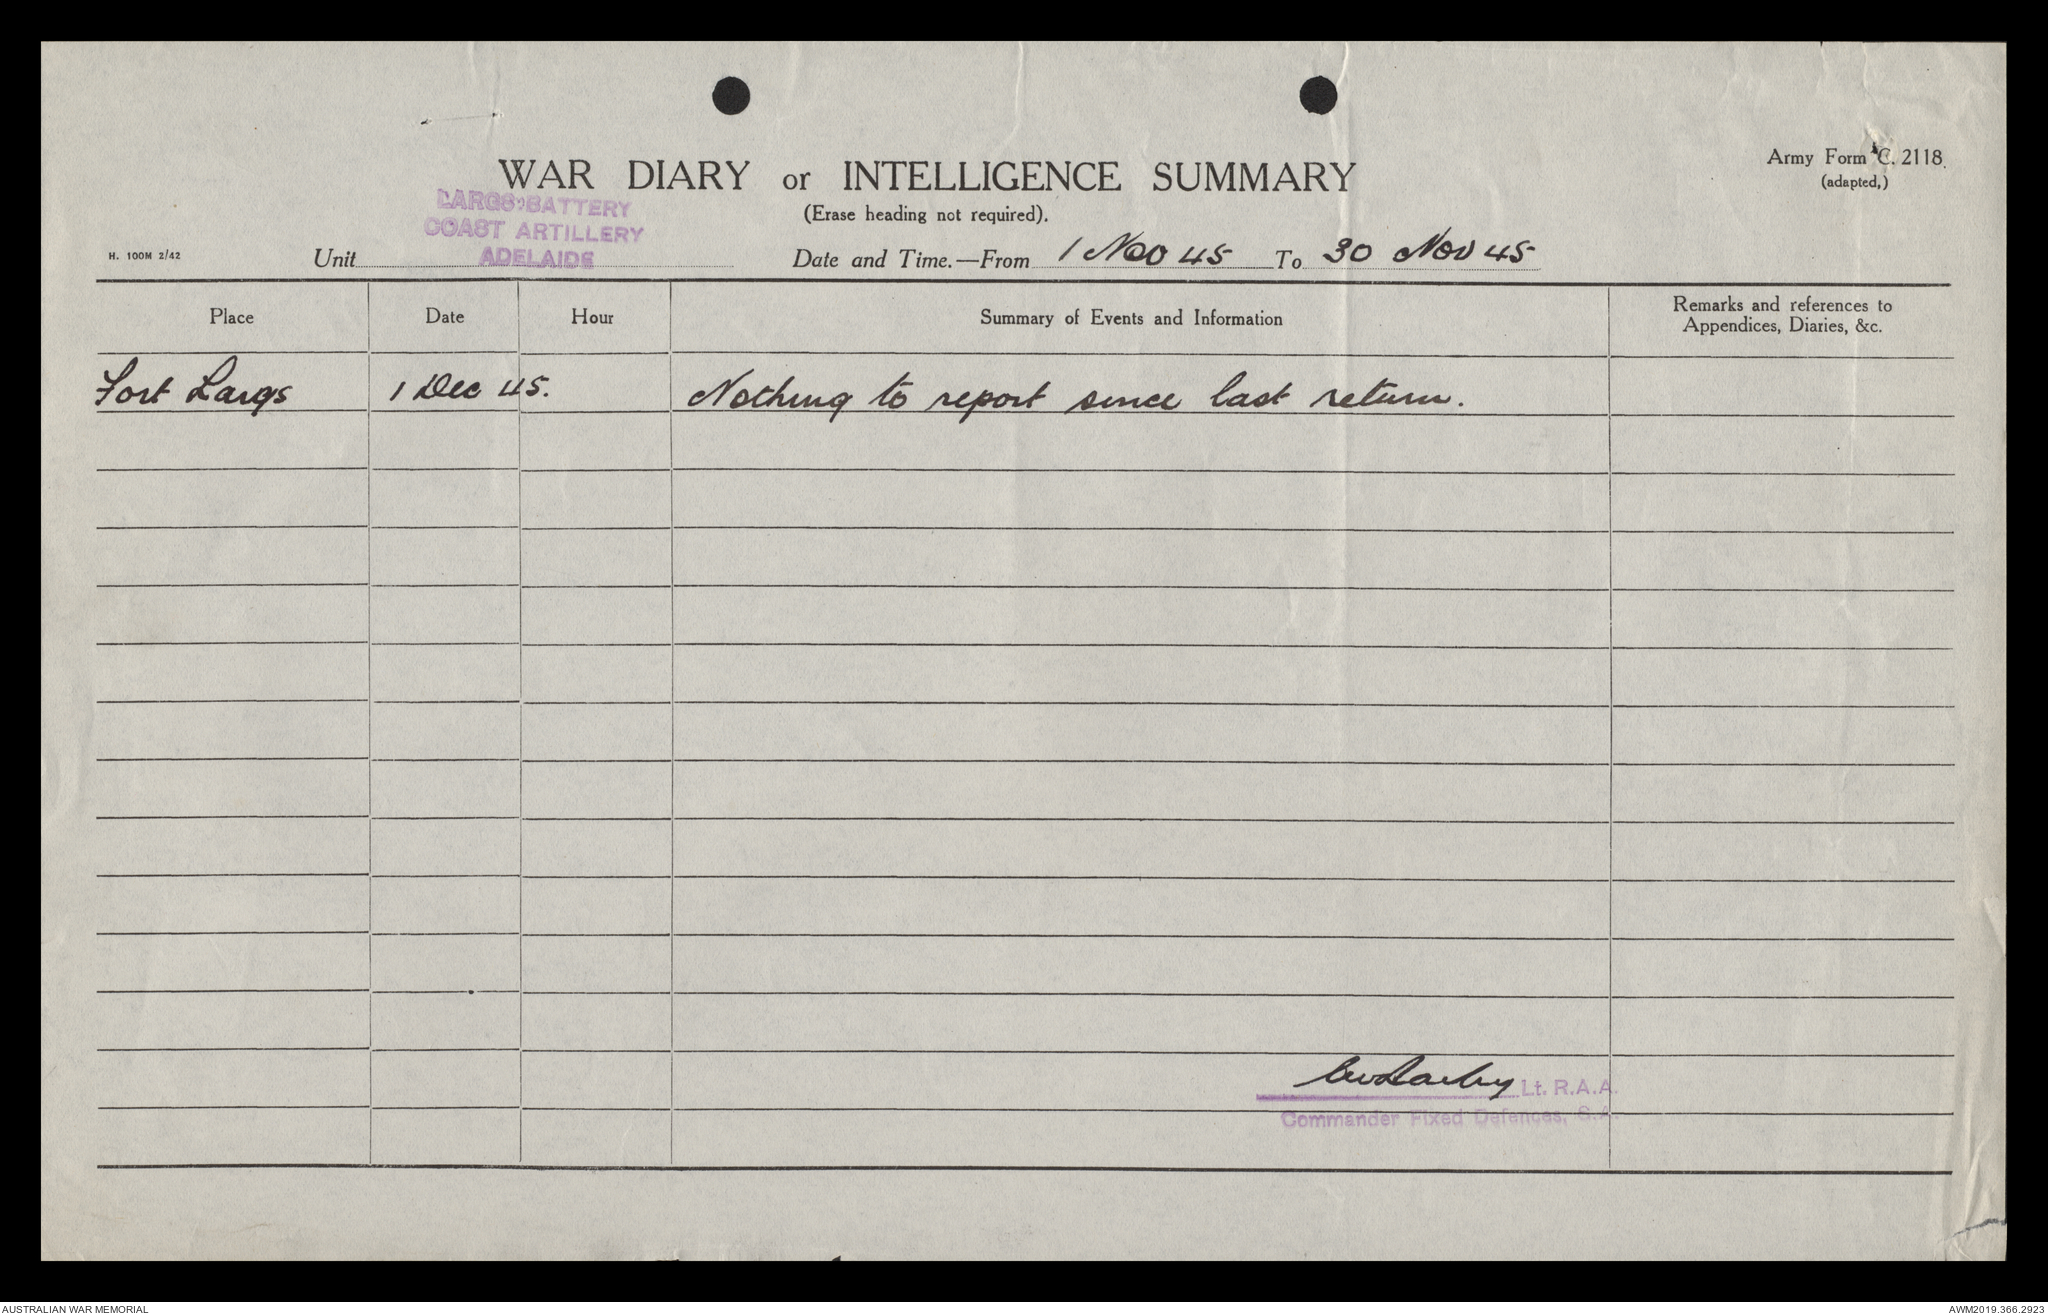 Army Form C. 2118.
(adapted,)
WAR DIARY or INTELLIGENCE SUMMARY
(Erase heading not required).
LARGS BATTERY
COAST ARTILLERY
ADELAIDE
H. 100M 2/42
Unit
Date and Time.—From 1 Nov 45 To 30 Nov 45
Place Date Hour Summary of Events and Information Remarks and references to
Appendices, Diaries, &c.
Fort Largs 1 Dec 45. Nothing to report since last return.
Lt. R.A.A.
Commander Fixed Defences, S.A.
AUSTRALIAN WAR MEMORIAL
AWM2019.366.2923